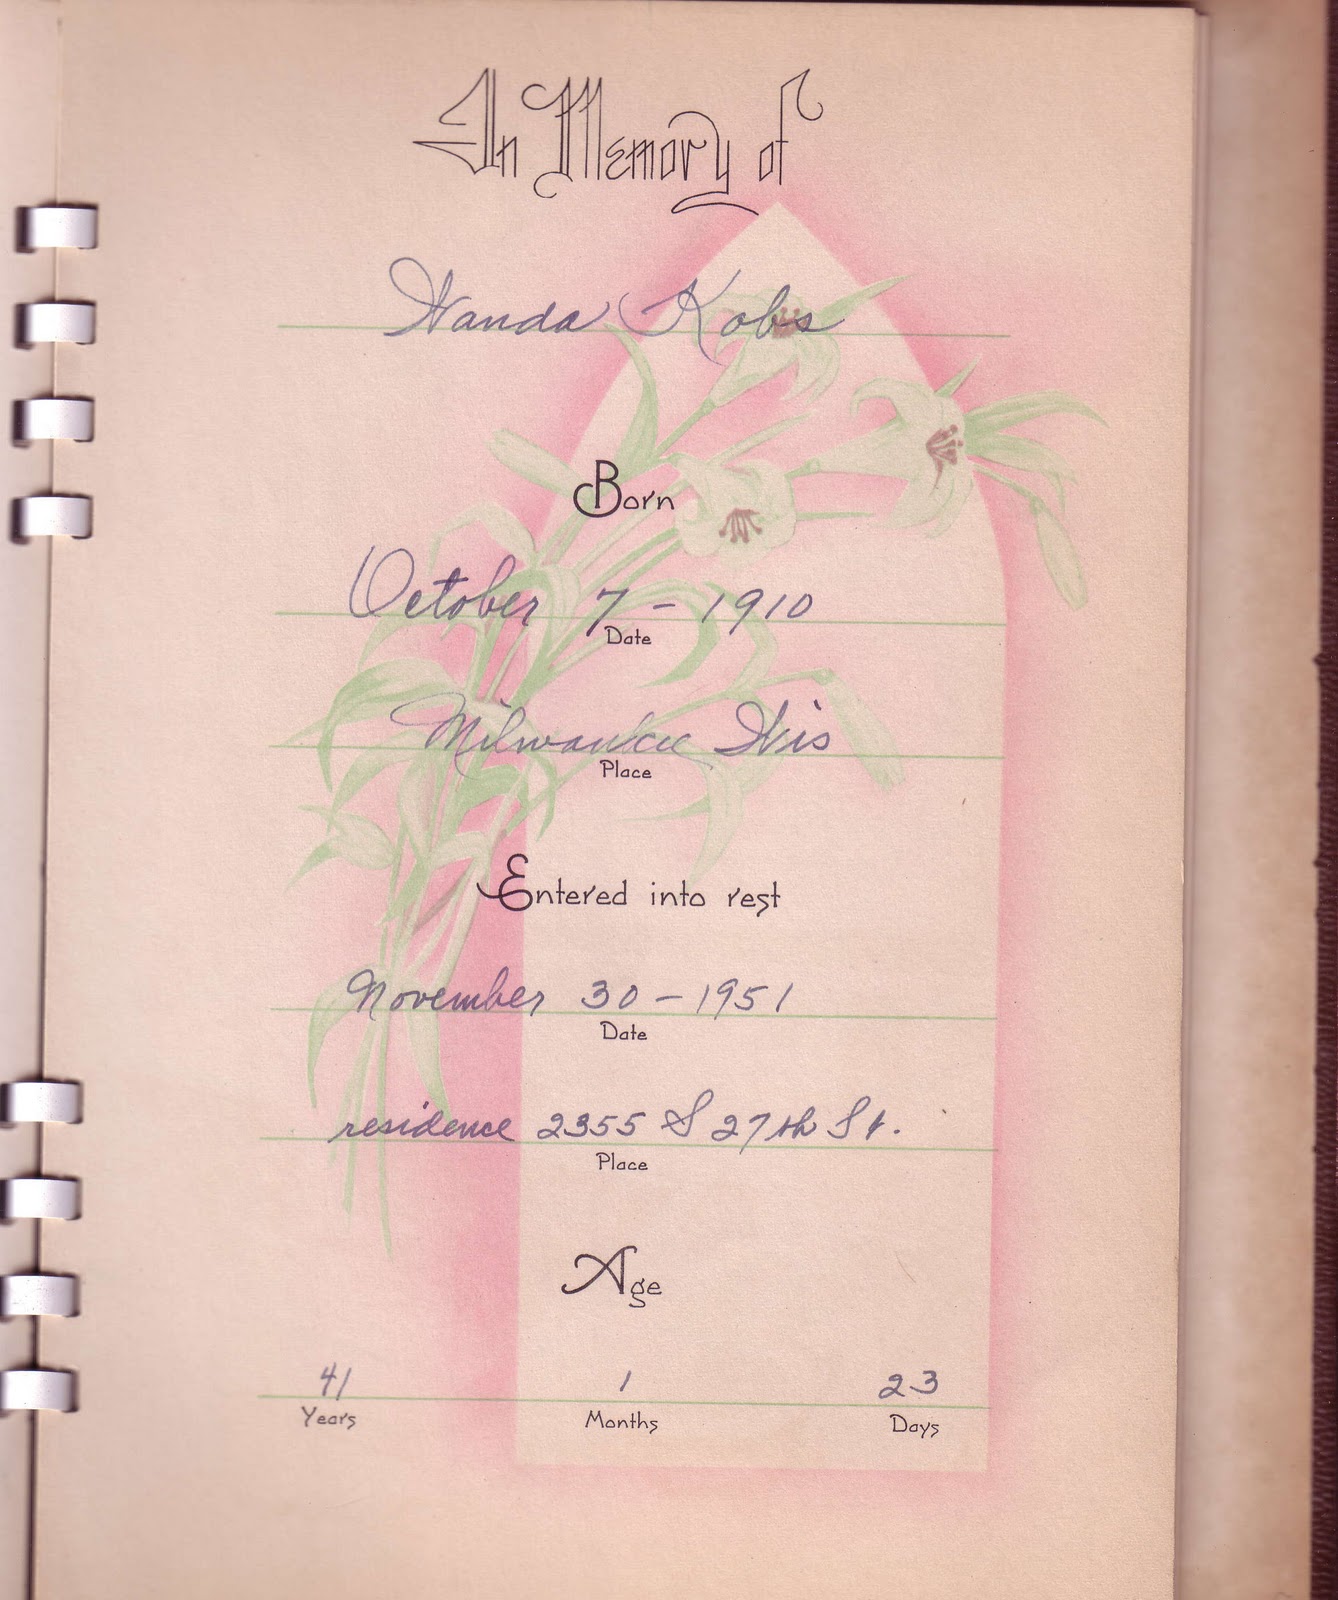 In Memory of
Wanda Kobs
Born
October 7 - 1910
Date
Milwaukee Wis
Place
Entered into rest
November 30 - 1951
Date
residence 2355 S 27th St.
Place
Age
41 1 23
Years Months Days